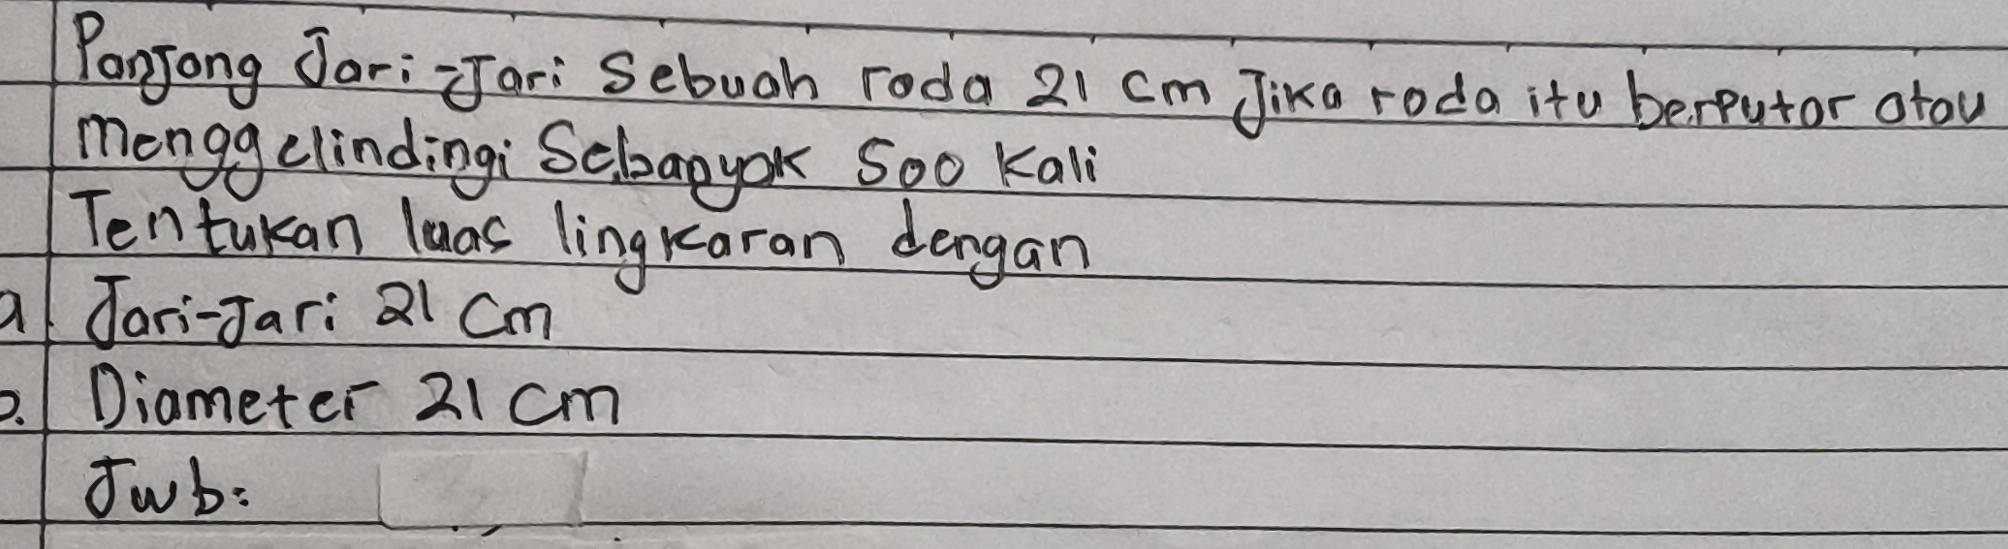 Panjang Jari-Jari Sebuah roda 21 cm Jika roda itu berputar atau
menggelindingi Sebanyak 500 Kali
Tentukan luas lingkaran dengan
a. Jari-Jari 21 Cm
b. Diameter 21 cm
Jwb: